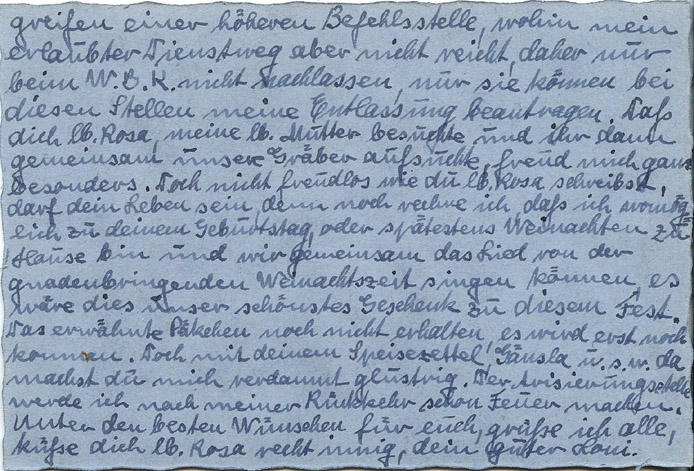 greifen einer höheren Befehlsstelle, wohin mein
erlaubter Dienstweg aber nicht reicht, daher nur
beim W.B.K. nicht nachlassen, nur sie können bei
diesen Stellen meine Entlassung beantragen. Daß
dich lb. Rosa, meine lb. Mutter besuchte und ihr dann
gemeinsam unsere Gräber aufsuchte, freud mich ganz
besonders. Doch nicht freudlos wie du lb. Rosa schreibst,
darf dein Leben sein, denn noch rechne ich daß ich womög-
lich zu deinem Geburtstag, oder spätestens Weinachten zu
Hause bin und wir gemeinsam das Lied von der
gnadenbringenden Weinachtszeit singen können, es
wäre dies unser schönstes Geschenk zu diesem Fest.
Das erwähnte Päkchen noch nicht erhalten, es wird erst noch
kommen. Doch mit deinem Speisezettel, Gänsla u.s.w. da
machst du mich verdammt glustrig. Der Avisierungsstelle
werde ich nach meiner Rückkehr schon Feuer machen.
Unter den besten Wünschen für euch, grüße ich alle,
küße dich lb. Rosa recht innig, dein guter